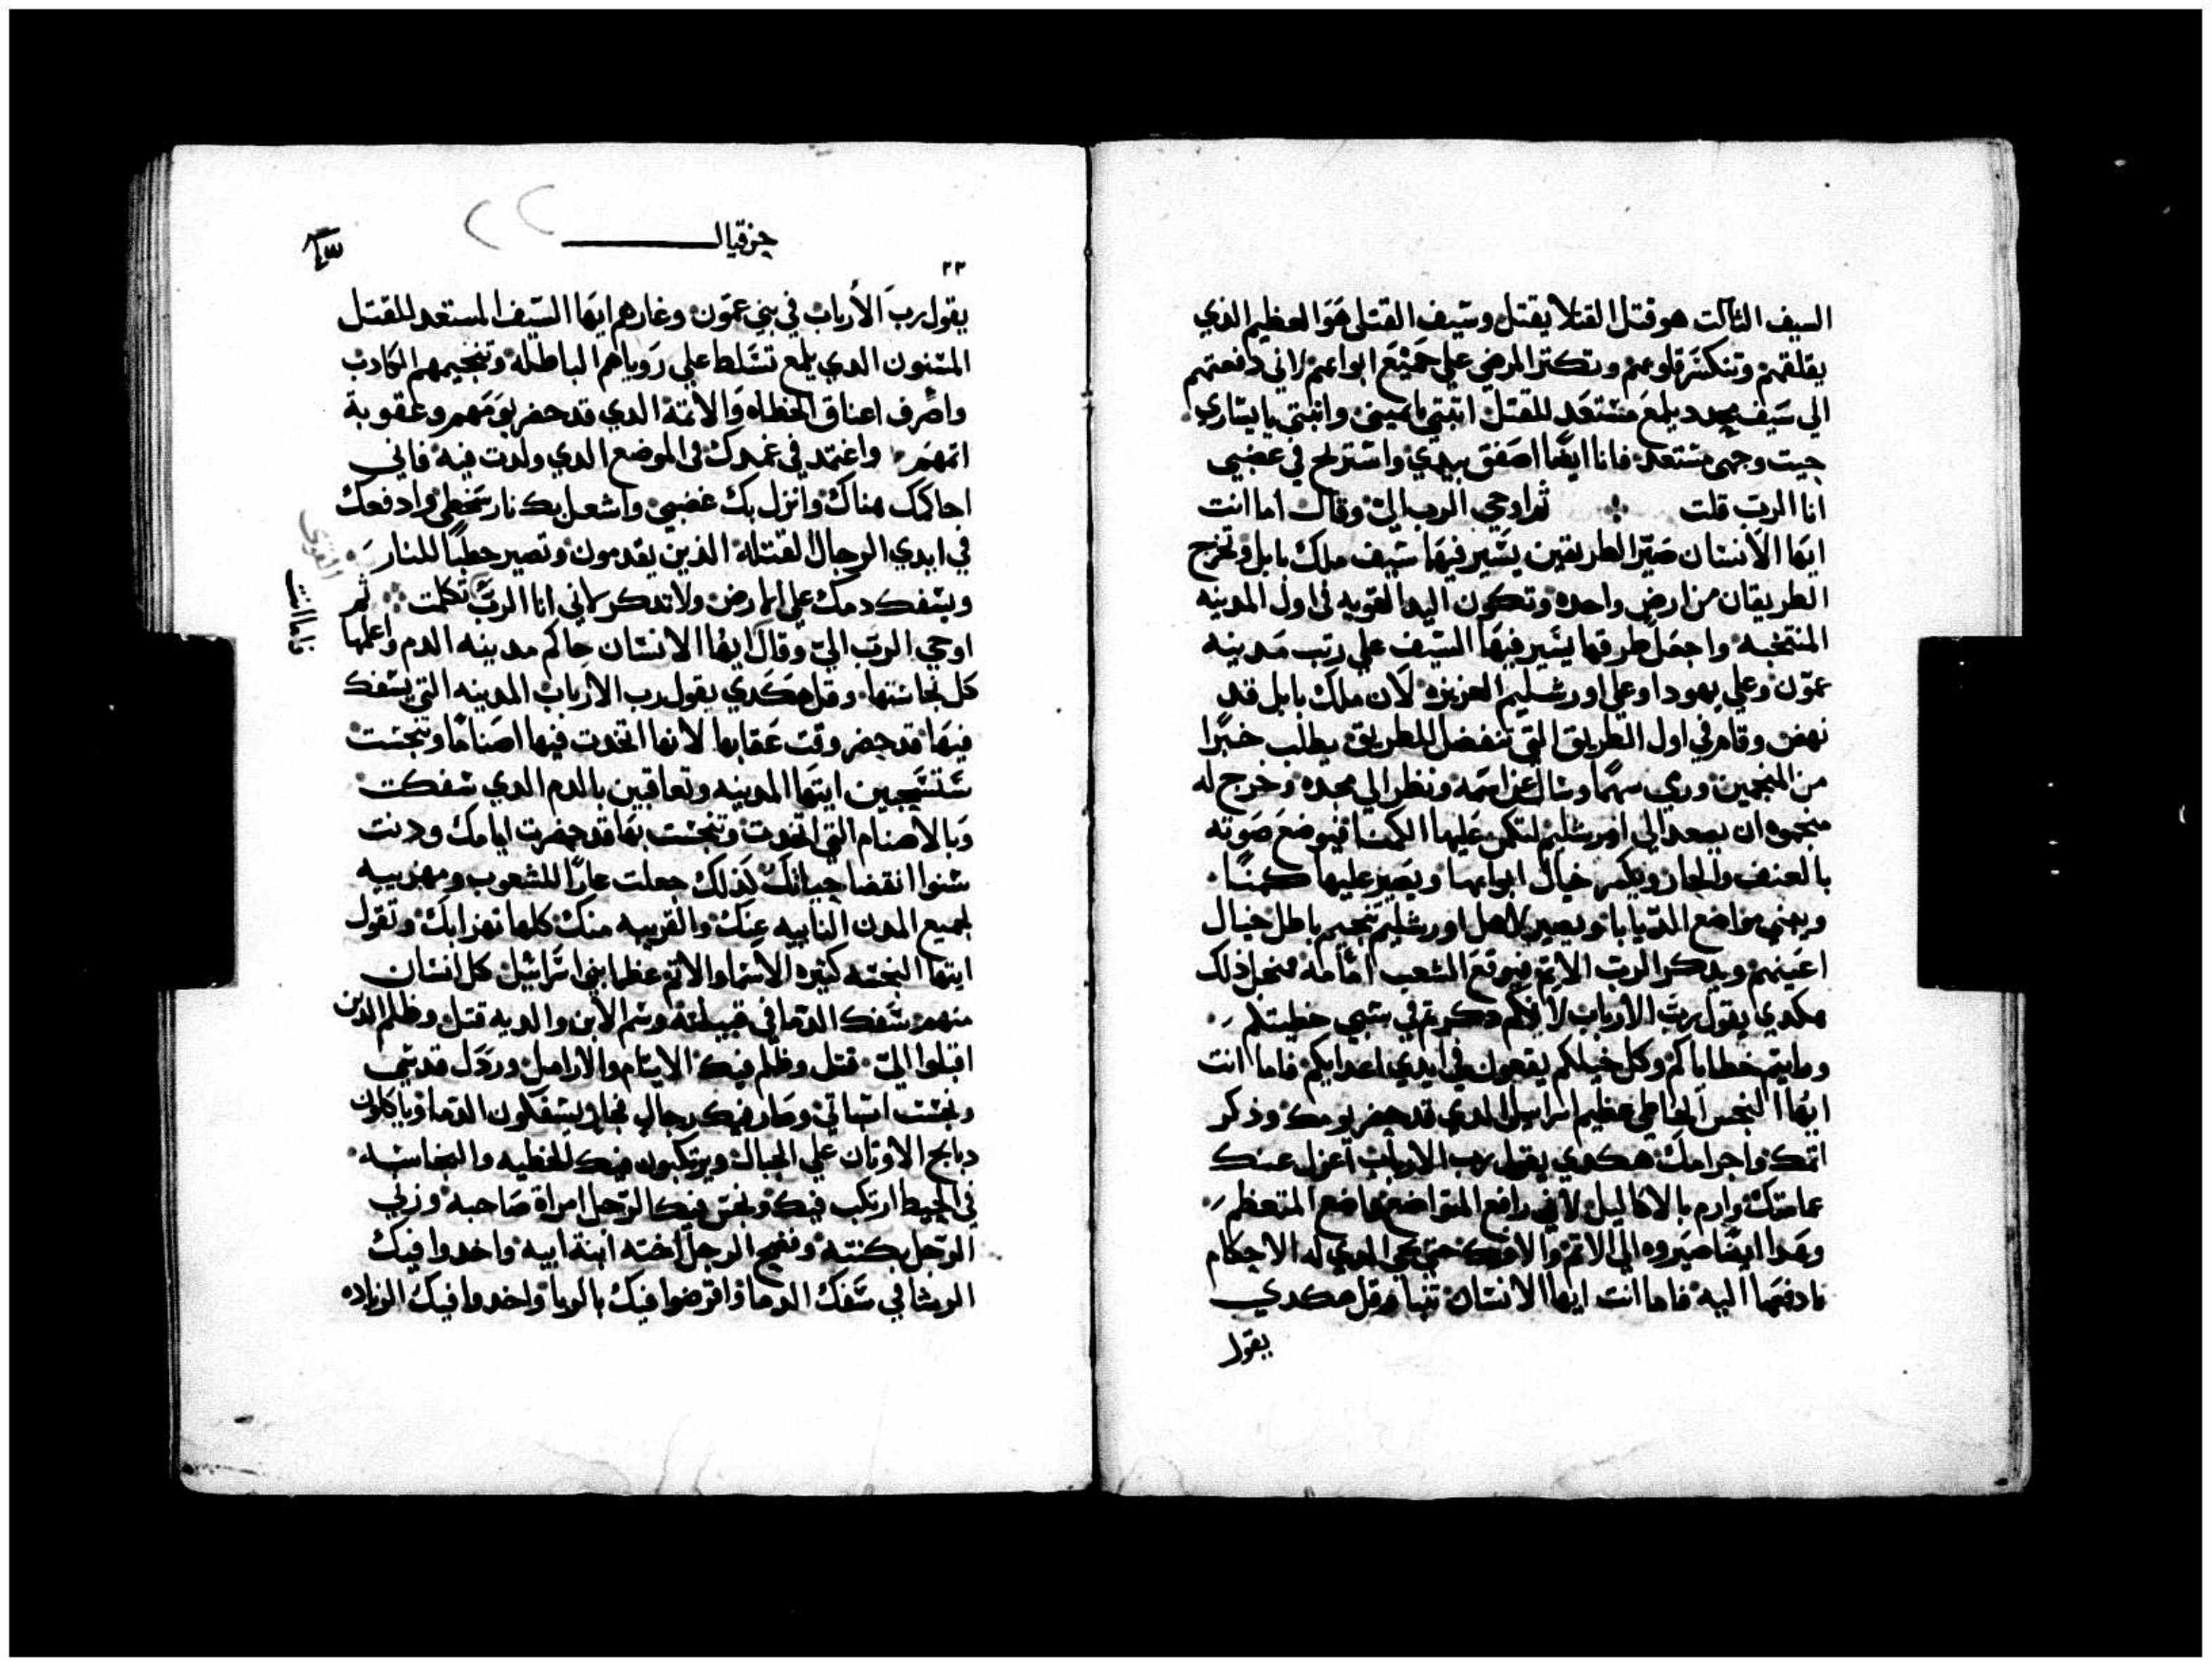 السيف الثالت هو قتل القتلا يقتل وسيف القتلي هو العظيم الذي
يقلقهم وتنكسر قلوبهم وتكتر المرضي علي جميع ابوابهم لاني دفعتهم
الي سيف محدد يلمع مستعد للقتل اتبتي يا يميني واتبتي يا يساري
حيت وجهي مستعد فانا ايضا اصفق بيدي واستريح في غضبي
انا الرب قلت ثم اوحي الرب الي وقال اما انت
ايها الانسان صير الطريقين يسير فيها سيف ملك بابل وتخرج
الطريقان من ارض واحده وتكون اليد القويه في اول المدينه
المنتخبه واجعل طرقها يسير فيها السيف علي ربت مدينه
عمون وعلي يهودا وعلي اورشليم العزيزه لان ملك بابل قد
نهض وقام في اول الطريق التي تنفصل للطريق يطلب خبرا
من المنجمين ورمي سهما وسال عن اسمه ونظر الي مجده وخرج له
منجموه ان يصعد الي اورشليم لتكمن عليها الكمنا فيوضع صوته
بالعنف والجار ويكمن خيال ابوابها ويصير عليها كمنا
ويبني مواضع الدبابات ويصير لاهل اورشليم تنجيم باطل خيال
اعينهم ويدكر الرب الاتم فيوقع الشعب امامه فمن اجل ذلك
هكدي يقول رب الارباب لانكم دكرتم في سبي خطيتكم
ورايتم خطاياكم وكل خيلكم يقعون في ايدي اعدايكم فاما انت
ايها النجس الخاطي عظيم اسراييل الدي قد حضر يومك وذكر
اتمك واجرامك هكدي يقول رب الارباب اعزل عنك
عمامتك وارم بالاكاليل لاني رافع المتواضع وواضع المتعظم
وهدا ايضا صيروه الي الاتم والافك حتي يجي الدي له الاحكام
فادفعها اليه فاما انت ايها الانسان تنبا وقل هكدي
يقول
حزقيال
٢٢
يقول رب الارباب في بني عمون وعارهم ايها السيف المستعد للقتل
المسنون الدي يلمع تسلط علي روياهم الباطله وتنجيمهم الكادب
واصرف اعناق الخطاه والاتمة الدي قد حضر يومهم وعقوبة
اتمهم واعتمد في غمدك في الموضع الدي ولدت فيه فاني
احاكمك هناك وانزل بك غضبي واشعل بك نار سخطي وادفعك
في ايدي الرجال القتله الذين يقدمون وتصير حطبا للنار
ويسفك دمك علي الارض ولا تدكر لاني انا الرب تكلمت ثم
اوحي الرب الي وقال ايها الانسان حاكم مدينه الدم واعلمها
كل نجاستها وقل هكدي يقول رب الارباب المدينه التي يسفك
فيها قد حضر وقت عقابها لانها اتخدت فيها اصناما وتنجست
ستسجين ايتها المدينه وتعاقبين بالدم الدي سفكت
وبالاصنام التي اتخدت وتنجست بها قد حضرت ايامك ودنت
سنوا انقضا حياتك لذلك جعلت عارا للشعوب ومهزييه
لجميع المدن النابيه عنك والقريبه منك كلها تهزا بك وتقول
ايتها النجسه كثيره الاسم والاتم عظما بني اسراييل كل انسان
منهم سفك الدما في قبيلته وشم الابن والديه قتل وظلم الدين
اقبلوا الي قتل وظلم فيك الايتام والارامل وردل قدسي
ونجست ابياتي وصار فيك رجال فجار يسفكون الدما وياكلون
دبايح الاوتان علي الجبال ويرتكبون فيك الخطيه والنجاسه
في الحيط ارتكب فيك ونجس فيك الرجل امراة صاحبه وزني
الرجل بكنته وفضح الرجل اخته ابنة ابيه واخدوا فيك
الرشا في سفك الدما واقرضوا فيك بالربا واخدوا فيك الزياده